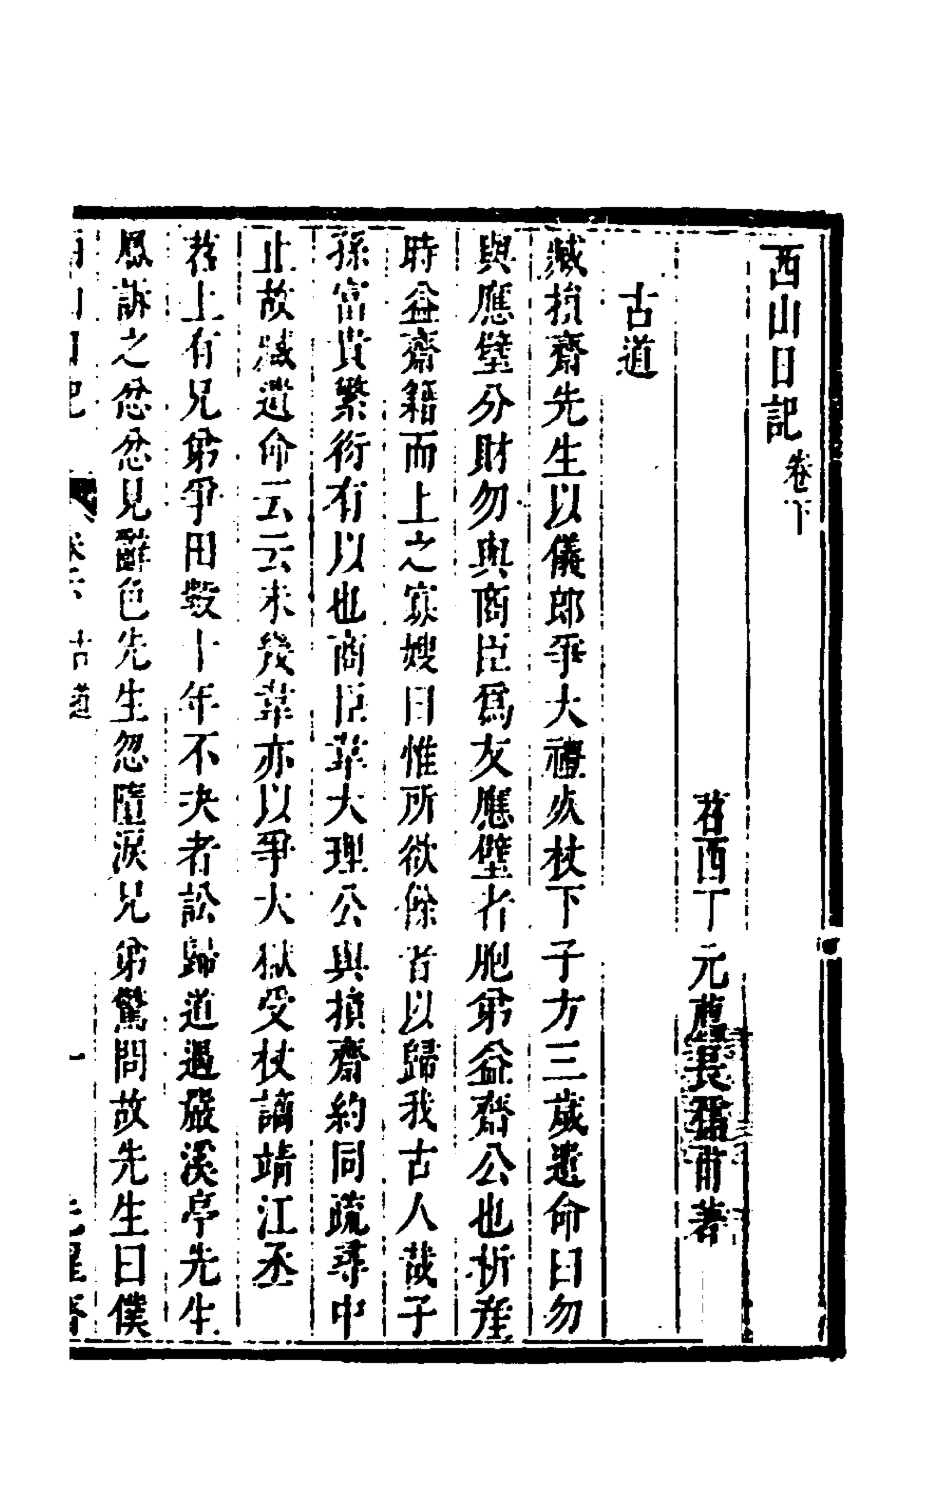 西山日記卷下
苕西丁元薦長孺甫著
古道
臧損齋先生以儀郎爭大禮斃杖下子方三歲遺命曰勿
與應壁分財勿與商臣爲友應璧者胞弟益齋公也析產
時益齋籍而上之寡嫂曰惟所欲餘者以歸我古人哉子
孫富貴繁衍有以也商臣韋大理公與損齋約同疏尋中
止故臧遺命云云未幾韋亦以爭大獄受杖謫靖江丞
苕上有兄弟爭田數十年不決者訟歸道遇嚴溪亭先生
訴之忿忿見辭色先生忽墮淚兄弟驚問故先生曰僕
西山日記 古道 一